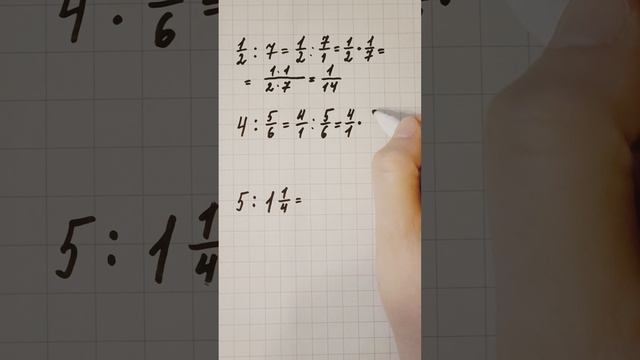 1/2 : 7 = 1/2 : 7/1 = 1/2 · 1/7 =
= 1·1/2·7 = 1/14
4 : 5/6 = 4/1 : 5/6 = 4/1 ·
5 : 1 1/4 =